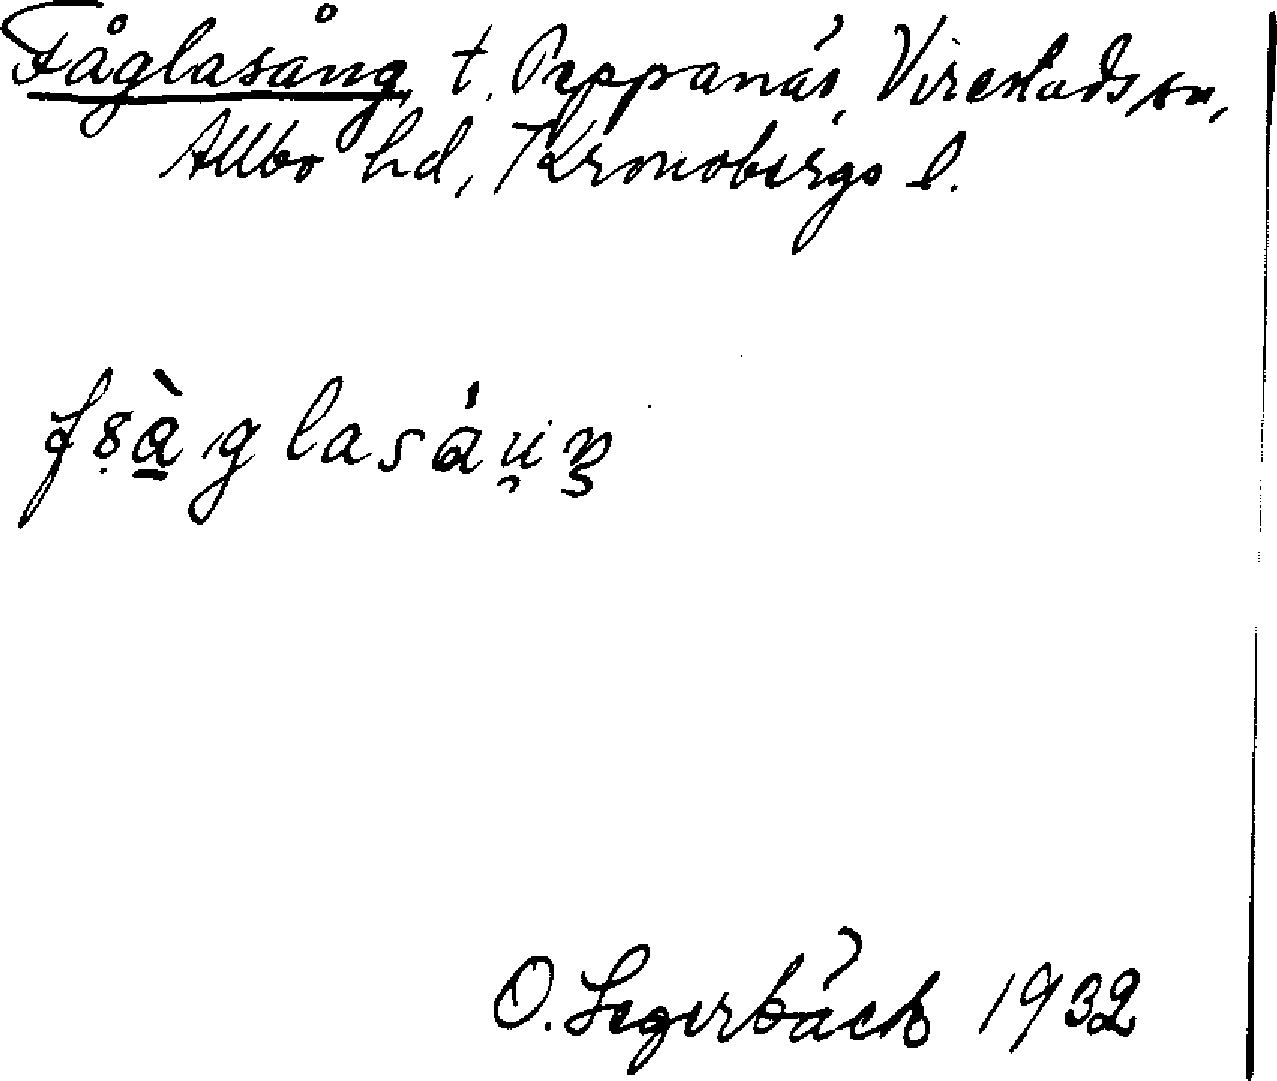 Fåglasång t. Peppanäs, Virestads sn,
Allbo hd, Kronobergs l.
fṣà̱glasáu̯ŋ
O. Segerbäck 1932